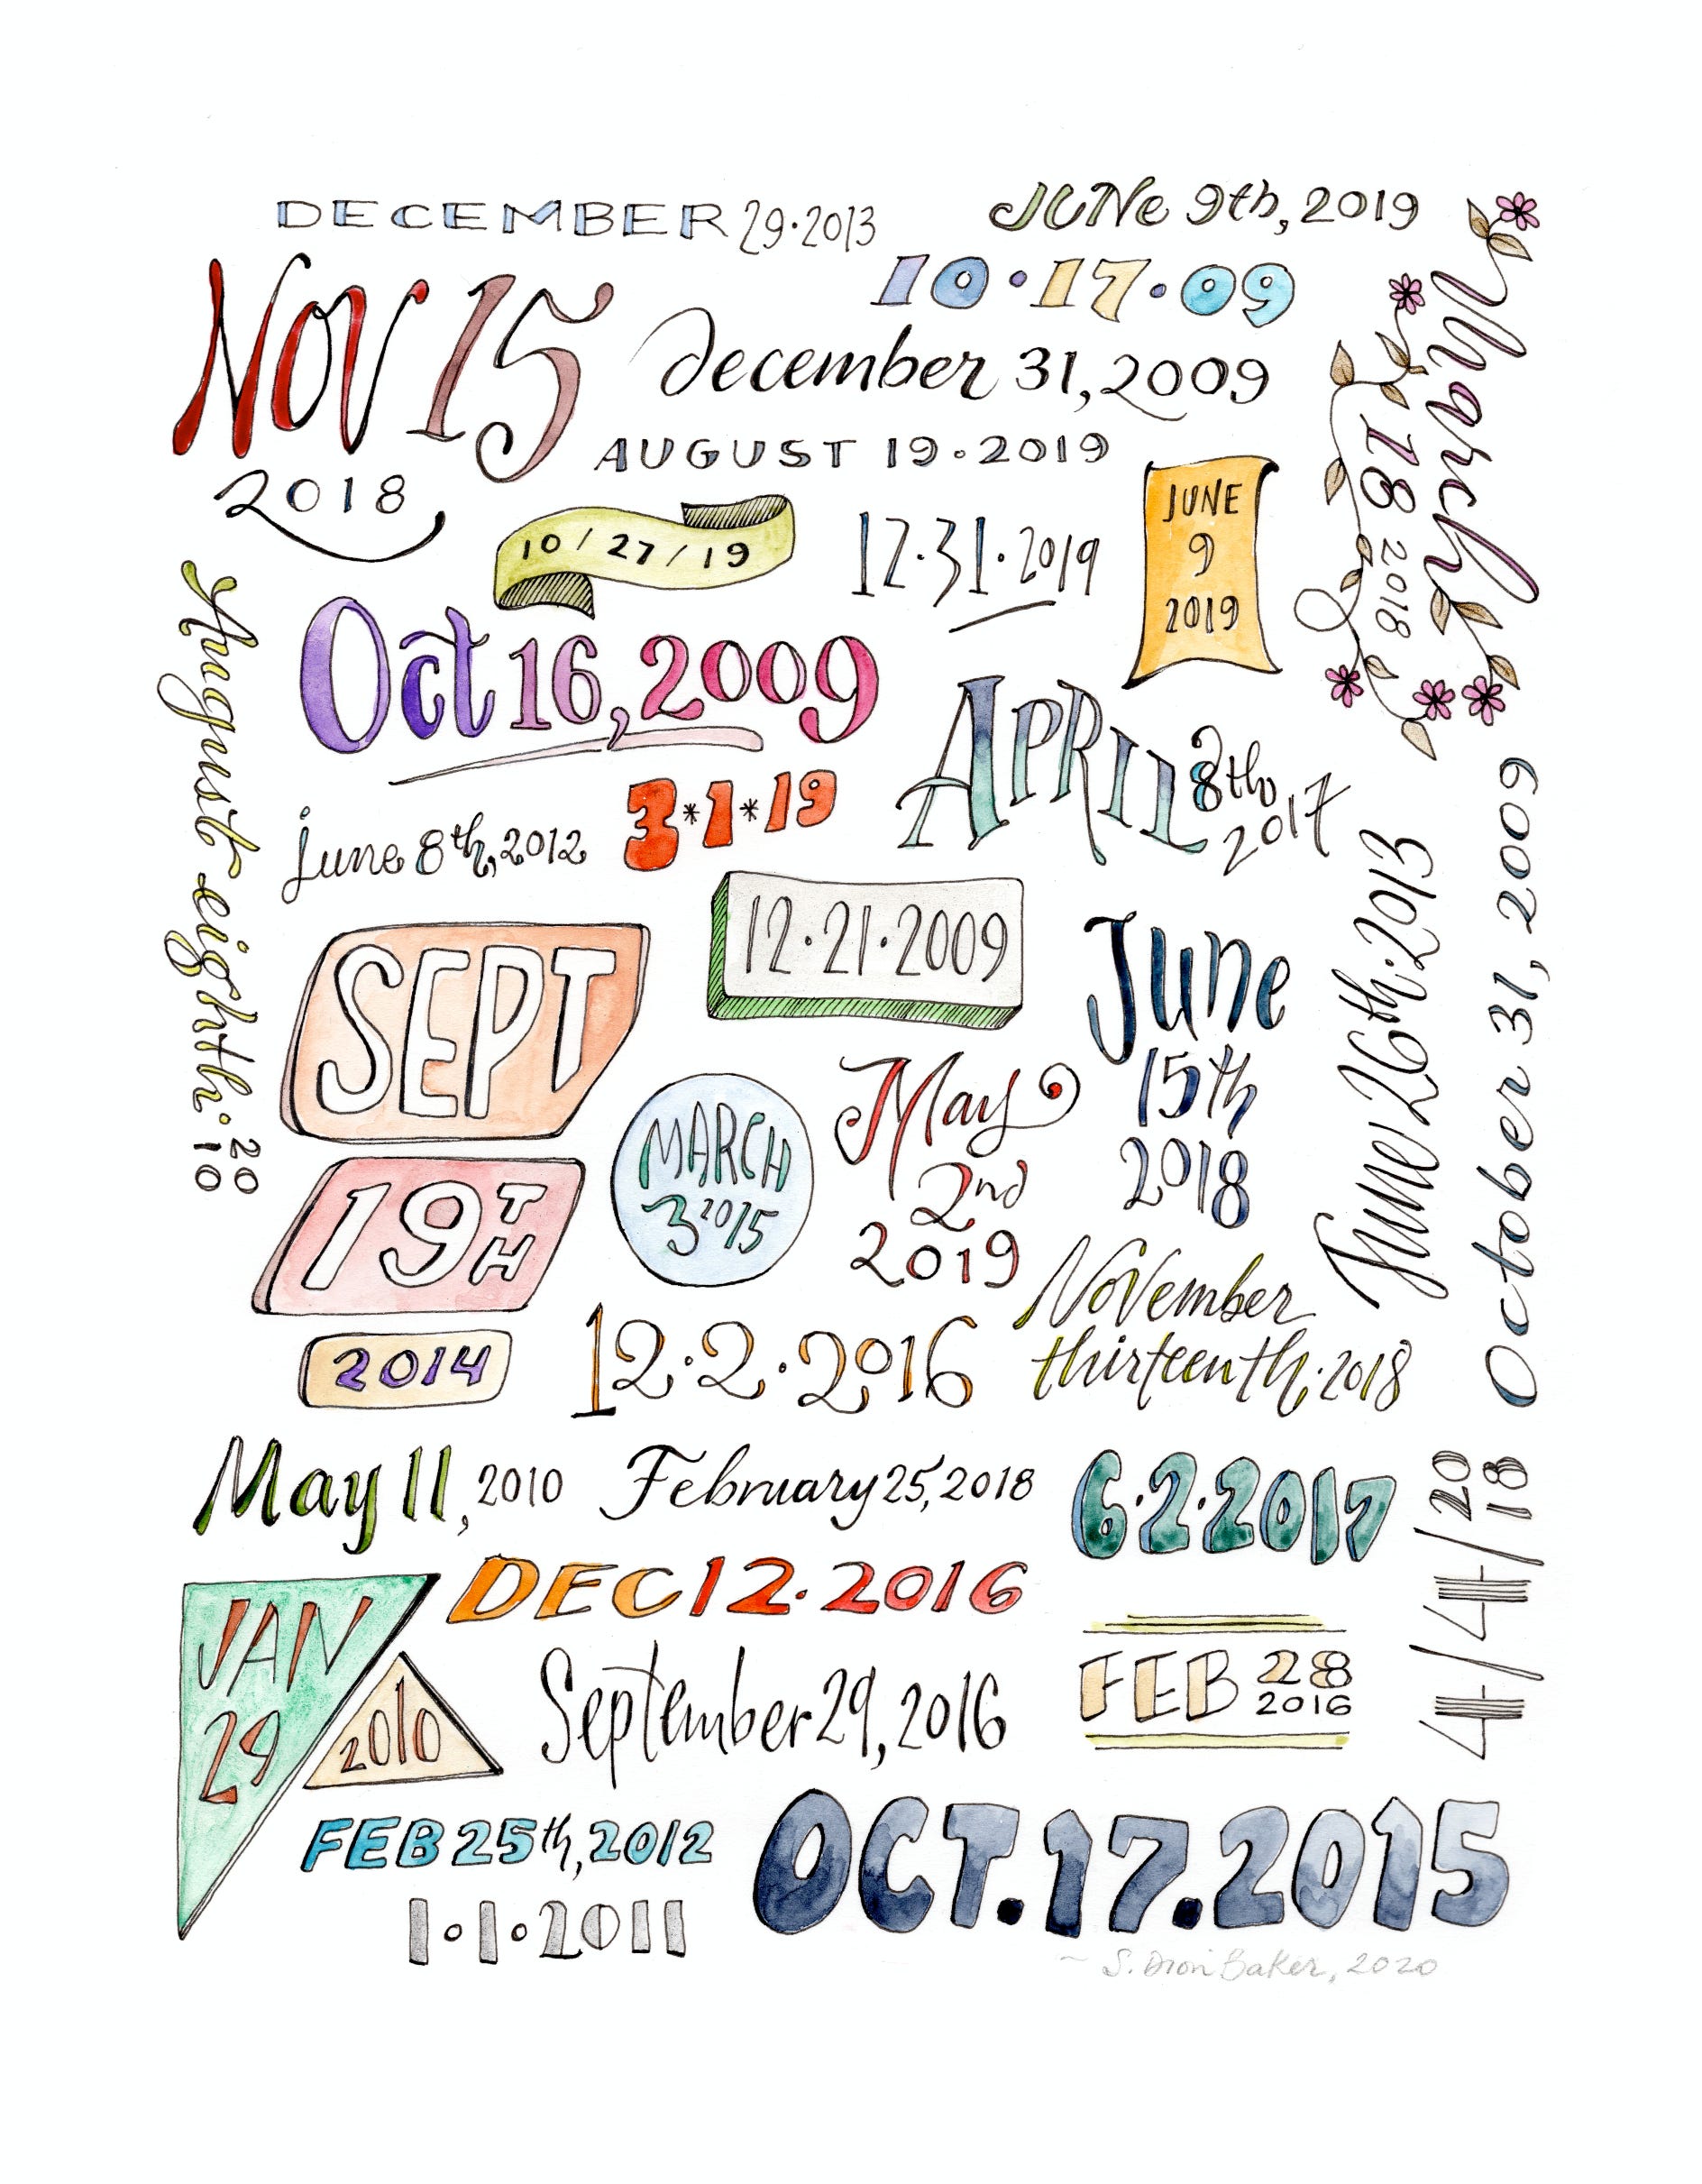 DECEMBER 29·2013
JUNe 9th, 2019
10·17·09
NOV 15
2018
December 31, 2009
AUGUST 19·2019
March
18 2018
10/27/19
12·31·2019
JUNE
9
2019
Oct 16, 2009
APRIL 8th
2017
August eighth·
20
10
june 8th, 2012
3*1*19
12·21·2009
SEPT
19TH
2014
June
15th
2018
June 26th·2013
October 31, 2009
MARCH
3 2015
May
2nd
2019
November
thirteenth·2018
12·2·2016
May 11, 2010
February 25, 2018
6·2·2017
4/4/20
18
DEC 12·2016
JAN
29
2010
September 29, 2016
FEB 28
2016
FEB 25th, 2012
1·1·2011
OCT.17.2015
~ S. Dion Baker, 2020